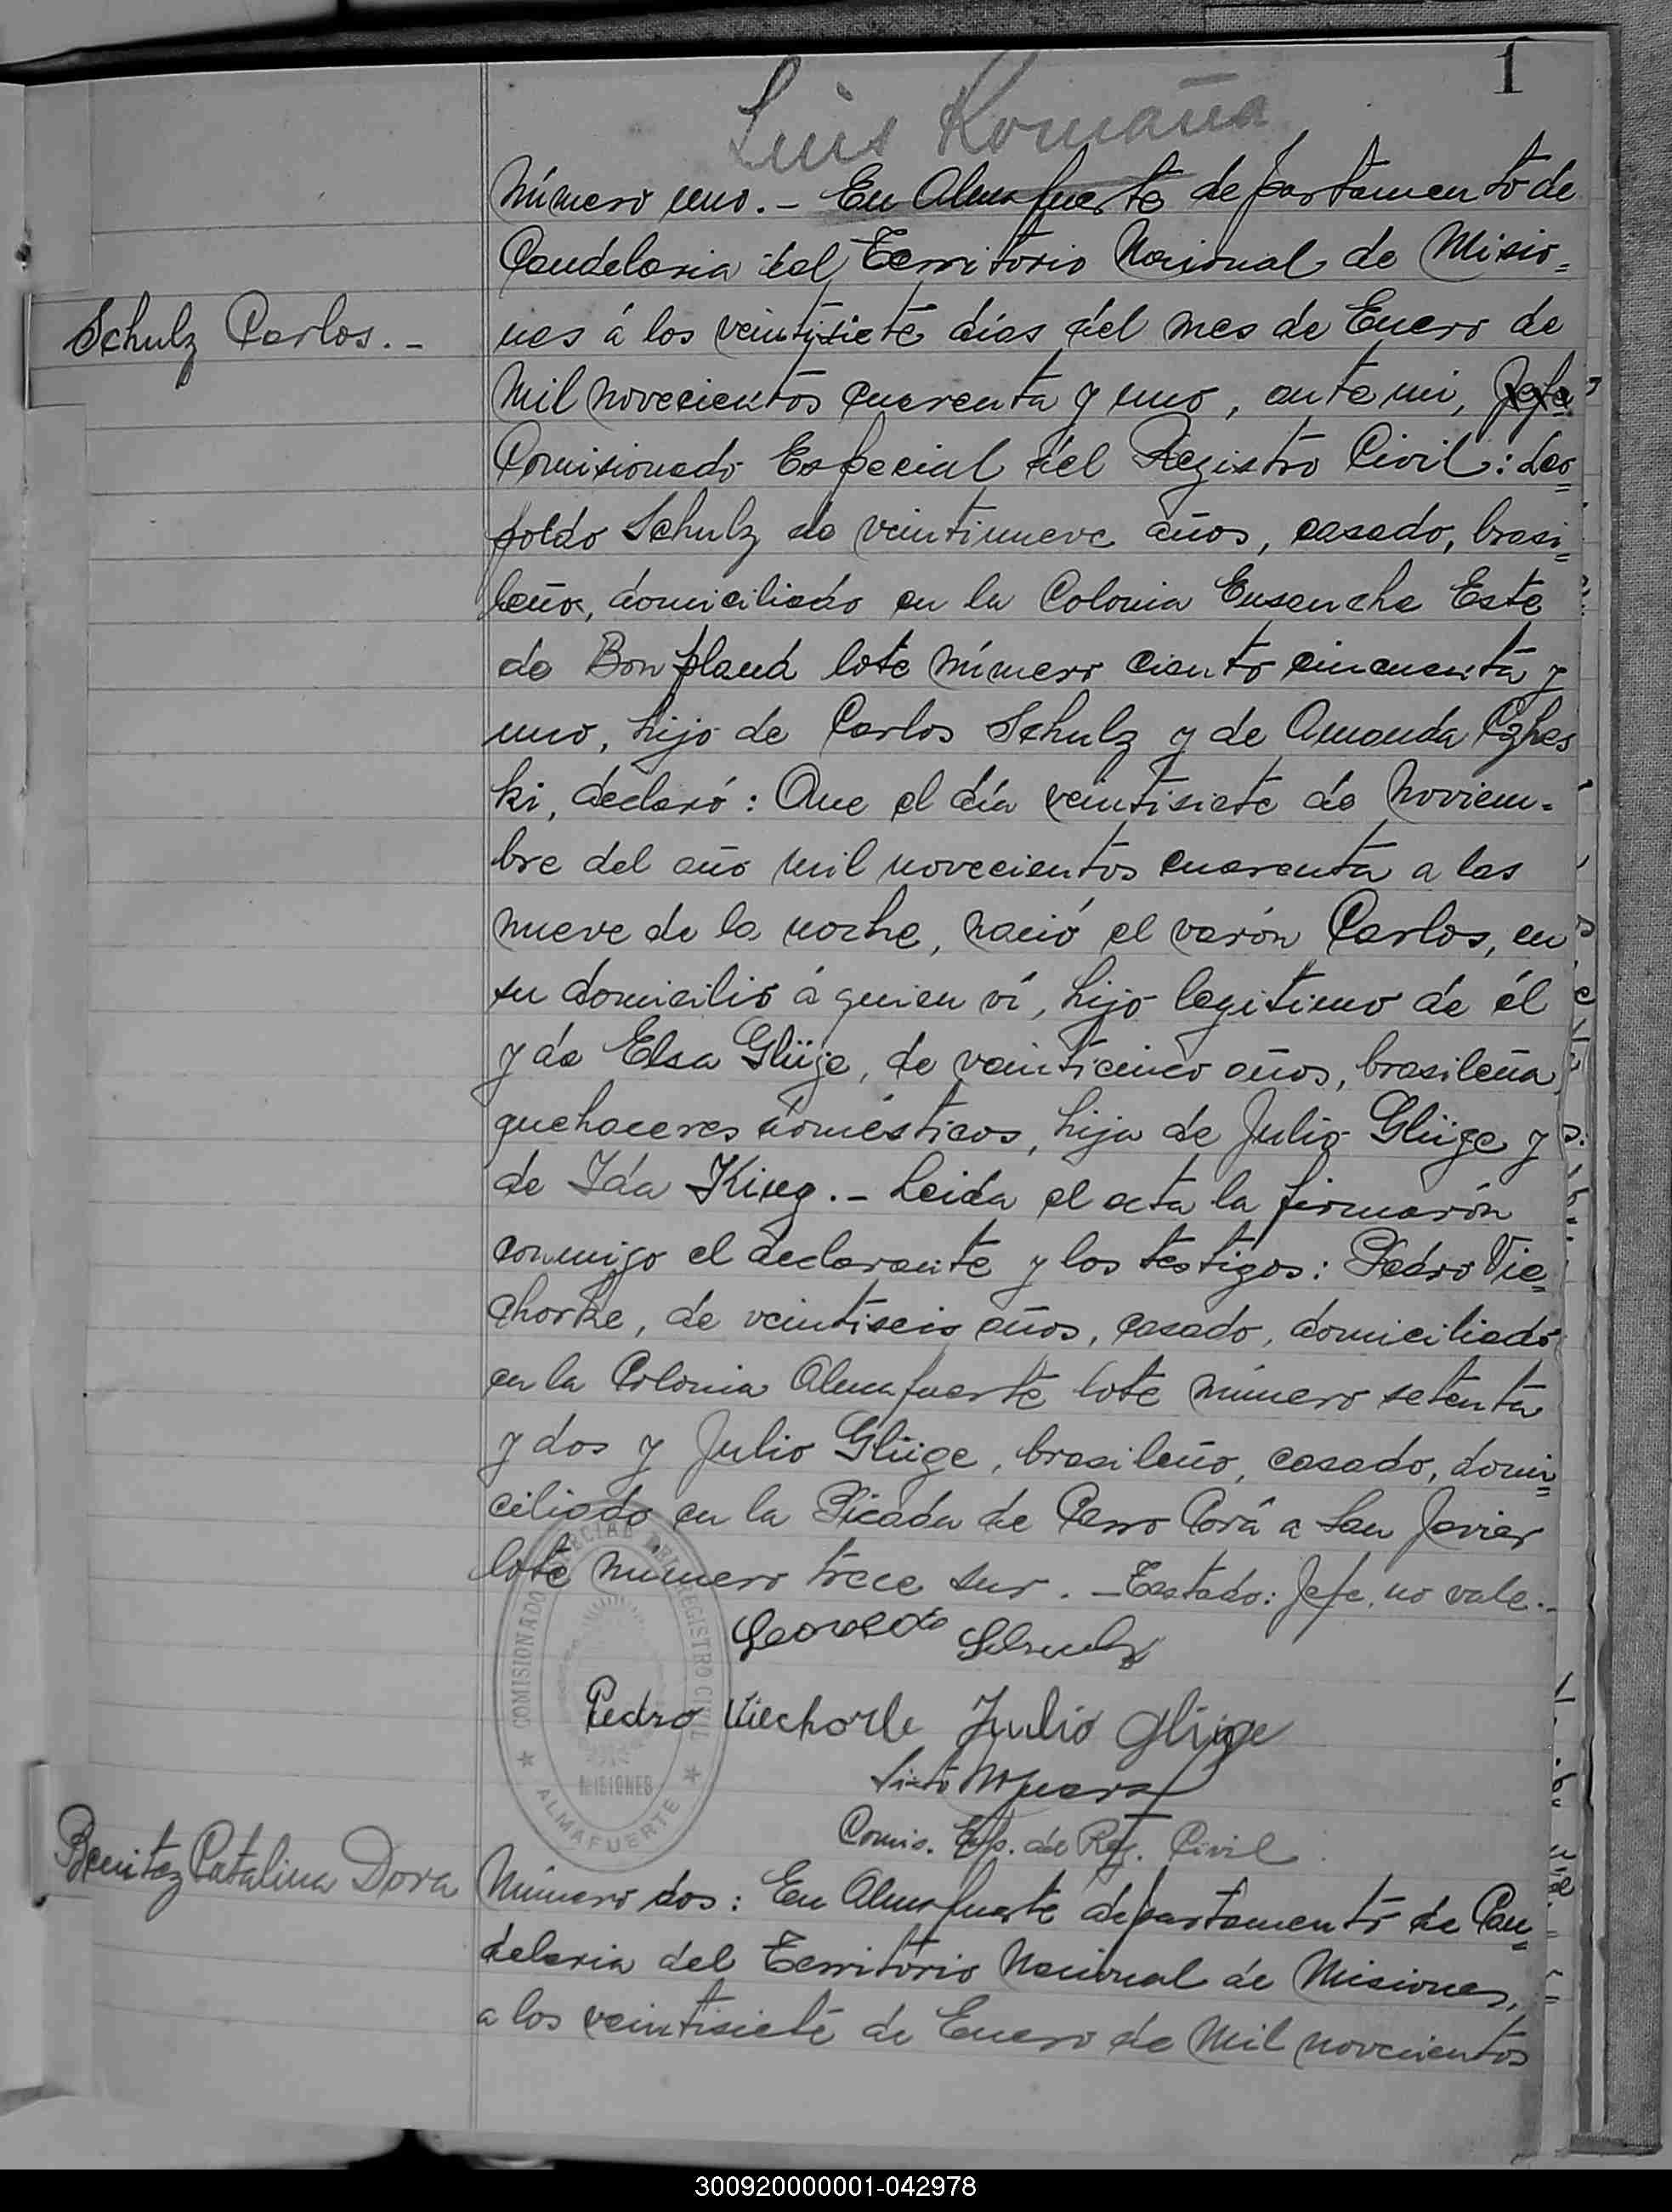 1
Luis Romaña
Número uno. - En Almafuerte departamento de
Candelaria del Territorio Nacional de Misio=
Schulz Carlos. -
nes á los veintisiete días del mes de Enero de
mil novecientos cuarenta y uno, ante mi, Jefe
Comisionado Especial del Registro Civil: Leo=
poldo Schulz de veintinueve años, casado, brasi=
leño, domiciliado en la Colonia Ensanche Este
de Bonpland lote número ciento cincuenta y
uno, hijo de Carlos Schulz y de Amanda Cghes
ki, declaró: Que el día veintisiete de Noviem=
bre del año mil novecientos cuarenta a las
nueve de la noche, nació el varón Carlos, en
su domicilio á quien ví, hijo legitimo de él
y de Elsa Glüge, de veinticinco años, brasileña
quehaceres domésticos, hija de Julio Glüge y
de Ida King. - Leida el acta la firmarón
conmigo el declarante y los testigos: Pedro Vie=
chorke, de veintiseis años, casado, domiciliado
en la Colonia Almafuerte lote número setenta
y dos y Julio Glüge, brasileño, casado, domi=
ciliado en la Picada de Cerro Corá a San Javier
lote número trece sur. - Testado: Jefe, no vale. -
Leopoldo Schulz
Pedro Viechorke Julio Glüge
COMISIONADO ESPECIAL DEL REGISTRO CIVIL
MISIONES
ALMAFUERTE
Comis. Esp. del Reg. Civil
Benitez Catalina Dora
Número dos: En Almafuerte departamento de Can=
delaria del Territorio Nacional de Misiones,
a los veintisiete de Enero de Mil novecientos
300920000001-042978